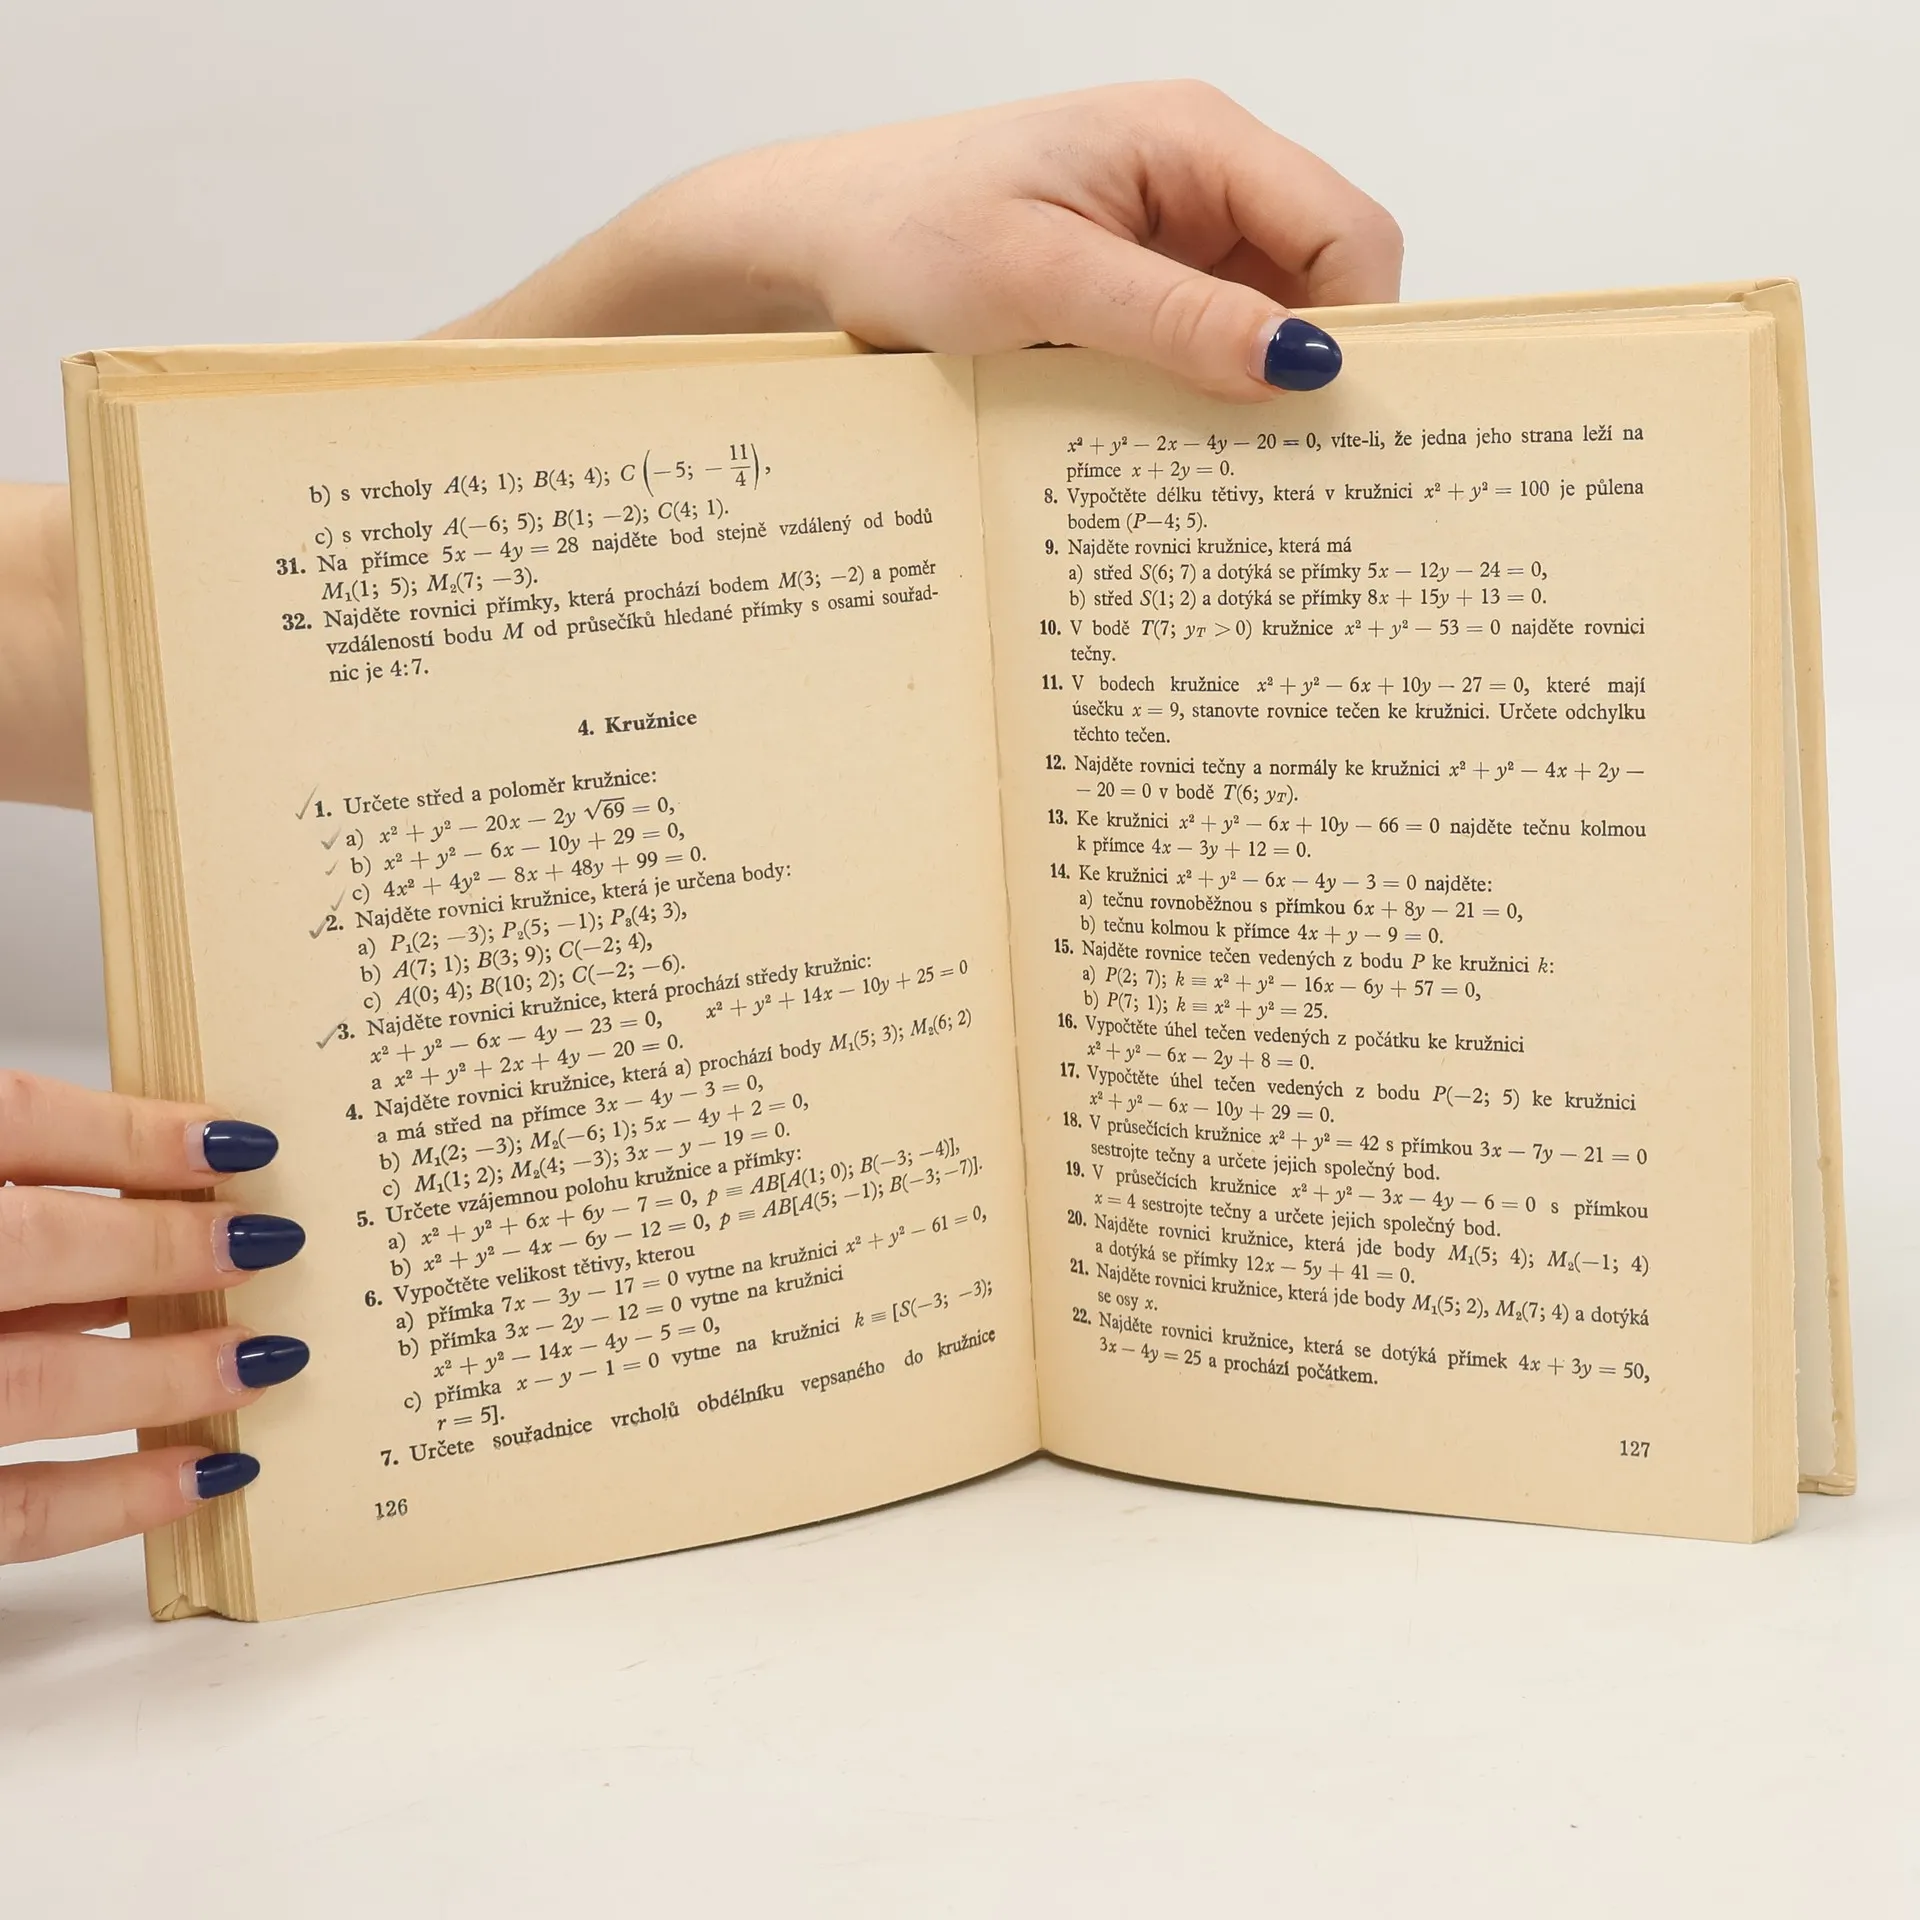 b) s vrcholy A(4; 1); B(4; 4); C (−5; − 11/4),
c) s vrcholy A(−6; 5); B(1; −2); C(4; 1).
31. Na přímce 5x − 4y = 28 najděte bod stejně vzdálený od bodů
M₁(1; 5); M₂(7; −3).
32. Najděte rovnici přímky, která prochází bodem M(3; −2) a poměr
vzdáleností bodu M od průsečíků hledané přímky s osami souřad-
nic je 4:7.
4. Kružnice
1. Určete střed a poloměr kružnice:
a) x² + y² − 20x − 2y √69 = 0,
b) x² + y² − 6x − 10y + 29 = 0,
c) 4x² + 4y² − 8x + 48y + 99 = 0.
2. Najděte rovnici kružnice, která je určena body:
a) P₁(2; −3); P₂(5; −1); P₃(4; 3),
b) A(7; 1); B(3; 9); C(−2; 4),
c) A(0; 4); B(10; 2); C(−2; −6).
3. Najděte rovnici kružnice, která prochází středy kružnic:
x² + y² − 6x − 4y − 23 = 0, x² + y² + 14x − 10y + 25 = 0
a x² + y² + 2x + 4y − 20 = 0.
4. Najděte rovnici kružnice, která a) prochází body M₁(5; 3); M₂(6; 2)
a má střed na přímce 3x − 4y − 3 = 0,
b) M₁(2; −3); M₂(−6; 1); 5x − 4y + 2 = 0,
c) M₁(1; 2); M₂(4; −3); 3x − y − 19 = 0.
5. Určete vzájemnou polohu kružnice a přímky:
a) x² + y² + 6x + 6y − 7 = 0, p ≡ AB[A(1; 0); B(−3; −4)],
b) x² + y² − 4x − 6y − 12 = 0, p ≡ AB[A(5; −1); B(−3; −7)].
6. Vypočtěte velikost tětivy, kterou
a) přímka 7x − 3y − 17 = 0 vytne na kružnici x² + y² − 61 = 0,
b) přímka 3x − 2y − 12 = 0 vytne na kružnici
x² + y² − 14x − 4y − 5 = 0,
c) přímka x − y − 1 = 0 vytne na kružnici k ≡ [S(−3; −3);
r = 5].
7. Určete souřadnice vrcholů obdélníku vepsaného do kružnice
126
x² + y² − 2x − 4y − 20 = 0, víte-li, že jedna jeho strana leží na
přímce x + 2y = 0.
8. Vypočtěte délku tětivy, která v kružnici x² + y² = 100 je půlena
bodem (P−4; 5).
9. Najděte rovnici kružnice, která má
a) střed S(6; 7) a dotýká se přímky 5x − 12y − 24 = 0,
b) střed S(1; 2) a dotýká se přímky 8x + 15y + 13 = 0.
10. V bodě T(7; y_T > 0) kružnice x² + y² − 53 = 0 najděte rovnici
tečny.
11. V bodech kružnice x² + y² − 6x + 10y − 27 = 0, které mají
úsečku x = 9, stanovte rovnice tečen ke kružnici. Určete odchylku
těchto tečen.
12. Najděte rovnici tečny a normály ke kružnici x² + y² − 4x + 2y −
− 20 = 0 v bodě T(6; y_T).
13. Ke kružnici x² + y² − 6x + 10y − 66 = 0 najděte tečnu kolmou
k přímce 4x − 3y + 12 = 0.
14. Ke kružnici x² + y² − 6x − 4y − 3 = 0 najděte:
a) tečnu rovnoběžnou s přímkou 6x + 8y − 21 = 0,
b) tečnu kolmou k přímce 4x + y − 9 = 0.
15. Najděte rovnice tečen vedených z bodu P ke kružnici k:
a) P(2; 7); k ≡ x² + y² − 16x − 6y + 57 = 0,
b) P(7; 1); k ≡ x² + y² = 25.
16. Vypočtěte úhel tečen vedených z počátku ke kružnici
x² + y² − 6x − 2y + 8 = 0.
17. Vypočtěte úhel tečen vedených z bodu P(−2; 5) ke kružnici
x² + y² − 6x − 10y + 29 = 0.
18. V průsečících kružnice x² + y² = 42 s přímkou 3x − 7y − 21 = 0
sestrojte tečny a určete jejich společný bod.
19. V průsečících kružnice x² + y² − 3x − 4y − 6 = 0 s přímkou
x = 4 sestrojte tečny a určete jejich společný bod.
20. Najděte rovnici kružnice, která jde body M₁(5; 4); M₂(−1; 4)
a dotýká se přímky 12x − 5y + 41 = 0.
21. Najděte rovnici kružnice, která jde body M₁(5; 2), M₂(7; 4) a dotýká
se osy x.
22. Najděte rovnici kružnice, která se dotýká přímek 4x + 3y = 50,
3x − 4y = 25 a prochází počátkem.
127